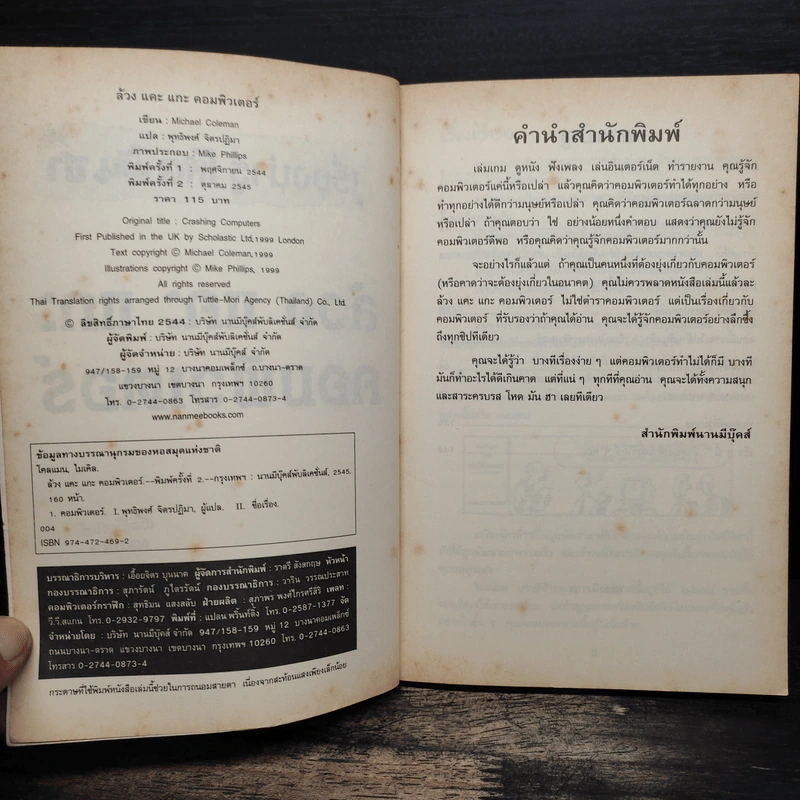 ล้วง แคะ แกะ คอมพิวเตอร์
เขียน : Michael Coleman
แปล : พุทธิพงศ์ จิตรปฏิมา
ภาพประกอบ : Mike Phillips
พิมพ์ครั้งที่ 1 : พฤศจิกายน 2544
พิมพ์ครั้งที่ 2 : ตุลาคม 2545
ราคา 115 บาท
Original title : Crashing Computers
First Published in the UK by Scholastic Ltd,1999 London
Text copyright © Michael Coleman,1999
Illustrations copyright © Mike Phillips, 1999
All rights reserved
Thai Translation rights arranged through Tuttle-Mori Agency (Thailand) Co., Ltd.
© ลิขสิทธิ์ภาษาไทย 2544 : บริษัท นานมีบุ๊คส์พับลิเคชั่นส์ จำกัด
ผู้จัดพิมพ์ : บริษัท นานมีบุ๊คส์พับลิเคชั่นส์ จำกัด
ผู้จัดจำหน่าย : บริษัท นานมีบุ๊คส์ จำกัด
947/158-159 หมู่ 12 บางนาคอมเพล็กซ์ ถ.บางนา-ตราด
แขวงบางนา เขตบางนา กรุงเทพฯ 10260
โทร. 0-2744-0863 โทรสาร 0-2744-0873-4
www.nanmeebooks.com
ข้อมูลทางบรรณานุกรมของหอสมุดแห่งชาติ
โคลแมน, ไมเคิล.
ล้วง แคะ แกะ คอมพิวเตอร์.--พิมพ์ครั้งที่ 2.--กรุงเทพฯ : นานมีบุ๊คส์พับลิเคชั่นส์, 2545.
160 หน้า.
1. คอมพิวเตอร์. I. พุทธิพงศ์ จิตรปฏิมา, ผู้แปล. II. ชื่อเรื่อง.
004
ISBN 974-472-469-2
บรรณาธิการบริหาร : เอื้อยจิตร บุนนาค ผู้จัดการสำนักพิมพ์ : ราตรี สังสกฤษ หัวหน้า
กองบรรณาธิการ : สุภารัตน์ ภูไตรรัตน์ กองบรรณาธิการ : วาริน วรรณประสาท
คอมพิวเตอร์กราฟิก : สุทธิมน แสงสลับ ฝ่ายผลิต : สุภาพร พงศ์ไกรศรีสิริ เพลท :
วี.วี.สแกน โทร. 0-2932-9797 พิมพ์ที่ : แปลน พริ้นท์ติ้ง โทร. 0-2587-1377 จัด
จำหน่ายโดย : บริษัท นานมีบุ๊คส์ จำกัด 947/158-159 หมู่ 12 บางนาคอมเพล็กซ์
ถนนบางนา-ตราด แขวงบางนา เขตบางนา กรุงเทพฯ 10260 โทร. 0-2744-0863
โทรสาร 0-2744-0873-4
กระดาษที่ใช้พิมพ์หนังสือเล่มนี้ช่วยในการถนอมสายตา เนื่องจากสะท้อนแสงเพียงเล็กน้อย
คำนำสำนักพิมพ์
เล่มเกม ดูหนัง ฟังเพลง เล่นอินเตอร์เน็ต ทำรายงาน คุณรู้จัก
คอมพิวเตอร์แค่นี้หรือเปล่า แล้วคุณคิดว่าคอมพิวเตอร์ทำได้ทุกอย่าง หรือ
ทำทุกอย่างได้ดีกว่ามนุษย์หรือเปล่า คุณคิดว่าคอมพิวเตอร์ฉลาดกว่ามนุษย์
หรือเปล่า ถ้าคุณตอบว่า ใช่ อย่างน้อยหนึ่งคำตอบ แสดงว่าคุณยังไม่รู้จัก
คอมพิวเตอร์ดีพอ หรือคุณคิดว่าคุณรู้จักคอมพิวเตอร์มากกว่านั้น
จะอย่างไรก็แล้วแต่ ถ้าคุณเป็นคนหนึ่งที่ต้องยุ่งเกี่ยวกับคอมพิวเตอร์
(หรือคาดว่าจะต้องยุ่งเกี่ยวในอนาคต) คุณไม่ควรพลาดหนังสือเล่มนี้แล้วละ
ล้วง แคะ แกะ คอมพิวเตอร์ ไม่ใช่ตำราคอมพิวเตอร์ แต่เป็นเรื่องเกี่ยวกับ
คอมพิวเตอร์ ที่รับรองว่าถ้าคุณได้อ่าน คุณจะได้รู้จักคอมพิวเตอร์อย่างลึกซึ้ง
ถึงทุกชิปทีเดียว
คุณจะได้รู้ว่า บางทีเรื่องง่าย ๆ แต่คอมพิวเตอร์ทำไม่ได้ก็มี บางที
มันก็ทำอะไรได้ดีเกินคาด แต่ที่แน่ ๆ ทุกทีที่คุณอ่าน คุณจะได้ทั้งความสนุก
และสาระครบรส โหด มัน ฮา เลยทีเดียว
สำนักพิมพ์นานมีบุ๊คส์